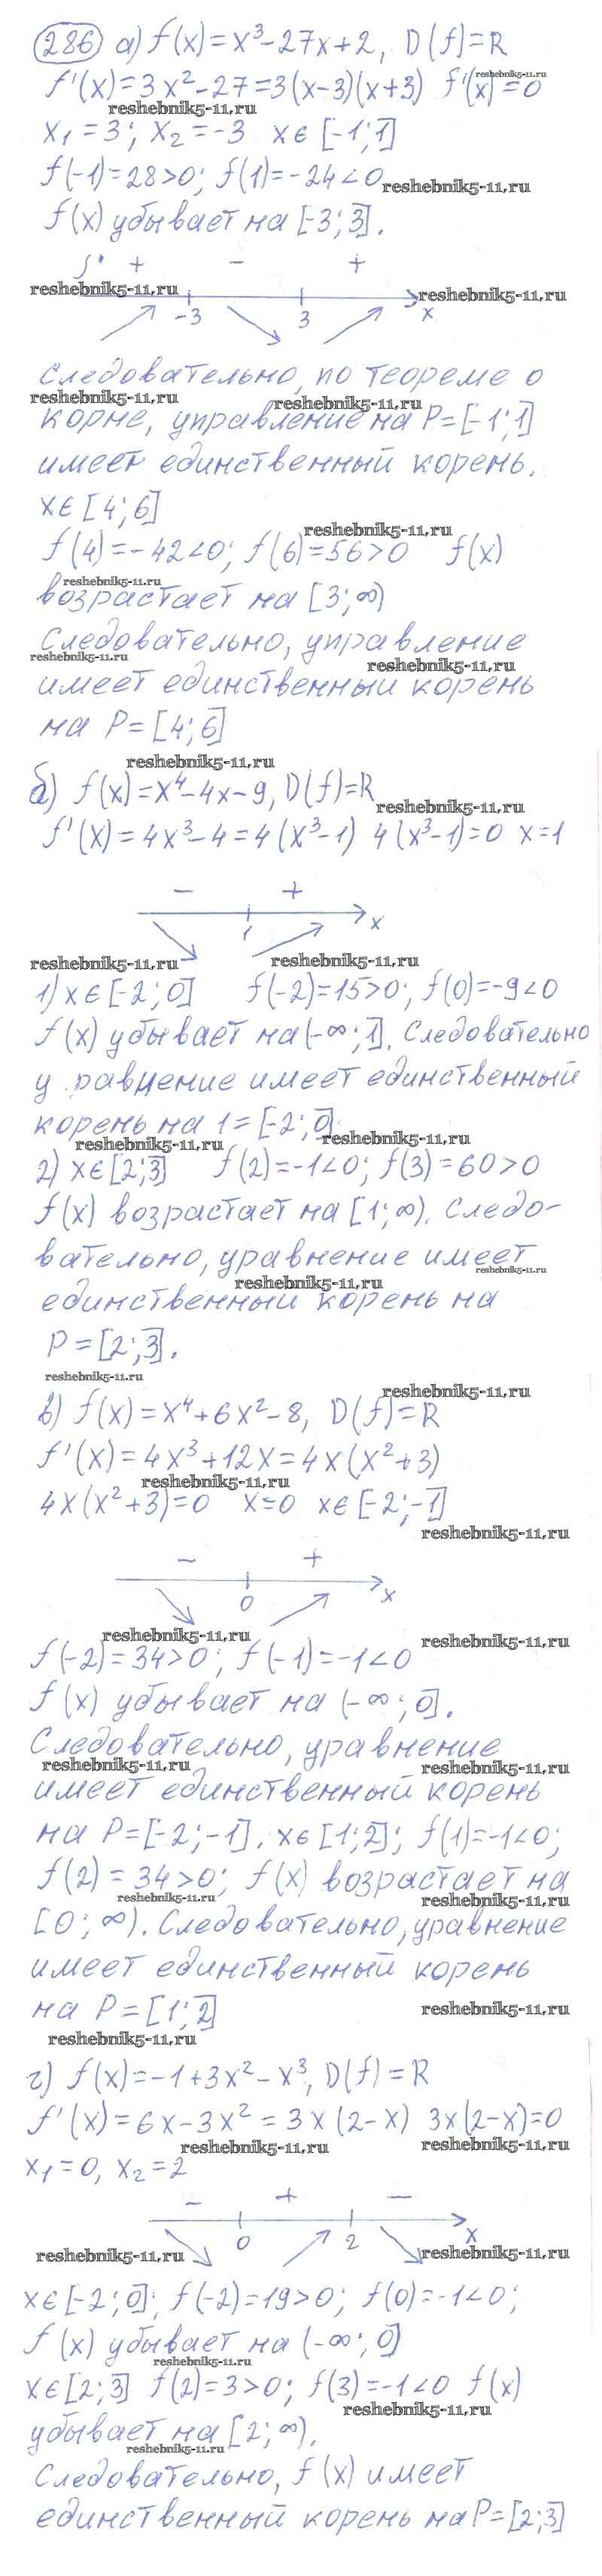 286 а) f(x)=x³-27x+2, D(f)=R
f'(x)=3x²-27=3(x-3)(x+3) f'(x)=0
reshebnik5-11.ru
reshebnik5-11.ru
x₁=3; x₂=-3 x∈[-1;1]
f(-1)=28>0; f(1)=-24<0
reshebnik5-11.ru
f(x) убывает на [-3;3].
f' + - +
reshebnik5-11.ru reshebnik5-11.ru
-3 3 x
Следовательно, по теореме о
reshebnik5-11.ru reshebnik5-11.ru
корне, управление на P=[-1;1]
имеет единственный корень.
x∈[4;6]
reshebnik5-11.ru
f(4)=-42<0; f(6)=56>0 f(x)
reshebnik5-11.ru
возрастает на [3;∞)
Следовательно, управление
reshebnik5-11.ru reshebnik5-11.ru
имеет единственный корень
на P=[4;6]
reshebnik5-11.ru
б) f(x)=x⁴-4x-9, D(f)=R
reshebnik5-11.ru
f'(x)=4x³-4=4(x³-1) 4(x³-1)=0 x=1
- +
1 x
reshebnik5-11.ru reshebnik5-11.ru
1) x∈[-2;0] f(-2)=15>0; f(0)=-9<0
f(x) убывает на (-∞;1]. Следовательно
уравнение имеет единственный
корень на 1=[-2;0]
reshebnik5-11.ru reshebnik5-11.ru
2) x∈[2;3] f(2)=-1<0; f(3)=60>0
f(x) возрастает на [1;∞). Следо-
вательно, уравнение имеет
reshebnik5-11.ru reshebnik5-11.ru
единственный корень на
P=[2;3].
reshebnik5-11.ru
reshebnik5-11.ru
в) f(x)=x⁴+6x²-8, D(f)=R
f'(x)=4x³+12x=4x(x²+3)
reshebnik5-11.ru
4x(x²+3)=0 x=0 x∈[-2;-1]
reshebnik5-11.ru
- +
0 x
reshebnik5-11.ru reshebnik5-11.ru
f(-2)=34>0; f(-1)=-1<0
f(x) убывает на (-∞;0].
Следовательно, уравнение
reshebnik5-11.ru reshebnik5-11.ru
имеет единственный корень
на P=[-2;-1]. x∈[1;2]; f(1)=-1<0;
f(2)=34>0; f(x) возрастает на
reshebnik5-11.ru reshebnik5-11.ru
[0;∞). Следовательно, уравнение
имеет единственный корень
на P=[1;2]
reshebnik5-11.ru
reshebnik5-11.ru
г) f(x)=-1+3x²-x³, D(f)=R
f'(x)=6x-3x²=3x(2-x) 3x(2-x)=0
reshebnik5-11.ru reshebnik5-11.ru
x₁=0, x₂=2
- + -
0 2 x
reshebnik5-11.ru reshebnik5-11.ru
x∈[-2;0]; f(-2)=19>0; f(0)=-1<0;
f(x) убывает на (-∞;0]
reshebnik5-11.ru
x∈[2;3] f(2)=3>0; f(3)=-1<0 f(x)
reshebnik5-11.ru
убывает на [2;∞).
reshebnik5-11.ru
Следовательно, f(x) имеет
единственный корень на P=[2;3]